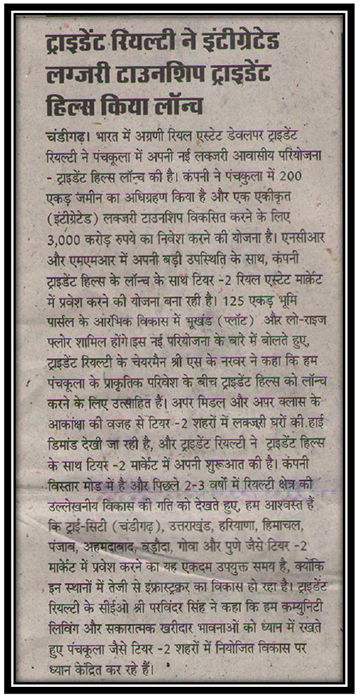 ट्राइडेंट रियल्टी ने इंटीग्रेटेड
लग्जरी टाउनशिप ट्राइडेंट
हिल्स किया लॉन्च
चंडीगढ़। भारत में अग्रणी रियल एस्टेट डेवलपर ट्राइडेंट
रियल्टी ने पंचकूला में अपनी नई लक्जरी आवासीय परियोजना
- ट्राइडेंट हिल्स लॉन्च की है। कंपनी ने पंचकुला में 200
एकड़ जमीन का अधिग्रहण किया है और एक एकीकृत
(इंटीग्रेटेड) लक्जरी टाउनशिप विकसित करने के लिए
3,000 करोड़ रुपये का निवेश करने की योजना है। एनसीआर
और एमएमआर में अपनी बड़ी उपस्थिति के साथ, कंपनी
ट्राइडेंट हिल्स के लॉन्च के साथ टियर -2 रियल एस्टेट मार्केट
में प्रवेश करने की योजना बना रही है। 125 एकड़ भूमि
पार्सल के आरंभिक विकास में भूखंड (प्लॉट) और लो-राइज
फ्लोर शामिल होंगे।इस नई परियोजना के बारे में बोलते हुए,
ट्राइडेंट रियल्टी के चेयरमैन श्री एस के नरवर ने कहा कि हम
पंचकूला के प्राकृतिक परिवेश के बीच ट्राइडेंट हिल्स को लॉन्च
करने के लिए उत्साहित हैं। अपर मिडल और अपर क्लास के
आकांक्षा की वजह से टियर -2 शहरों में लक्जरी घरों की हाई
डिमांड देखी जा रही है, और ट्राइडेंट रियल्टी ने ट्राइडेंट हिल्स
के साथ टियर -2 मार्केट में अपनी शुरूआत की है। कंपनी
विस्तार मोड में है और पिछले 2-3 वर्षों में रियल्टी क्षेत्र को
उल्लेखनीय विकास की गति को देखते हुए, हम आश्वस्त हैं
कि ट्राई-सिटी (चंडीगढ़), उत्तराखंड, हरियाणा, हिमाचल,
पंजाब, अहमदाबाद, वड़ौदा, गोवा और पुणे जैसे टियर -2
मार्केट में प्रवेश करने का यह एकदम उपयुक्त समय है, क्योंकि
इन स्थानों में तेजी से इंफ्रास्ट्रक्चर का विकास हो रहा है। ट्राइडेंट
रियल्टी के सीईओ श्री परविंदर सिंह ने कहा कि हम कम्युनिटी
लिविंग और सकारात्मक खरीदार भावनाओं को ध्यान में रखते
हुए पंचकूला जैसे टियर -2 शहरों में नियोजित विकास पर
ध्यान केंद्रित कर रहे हैं।